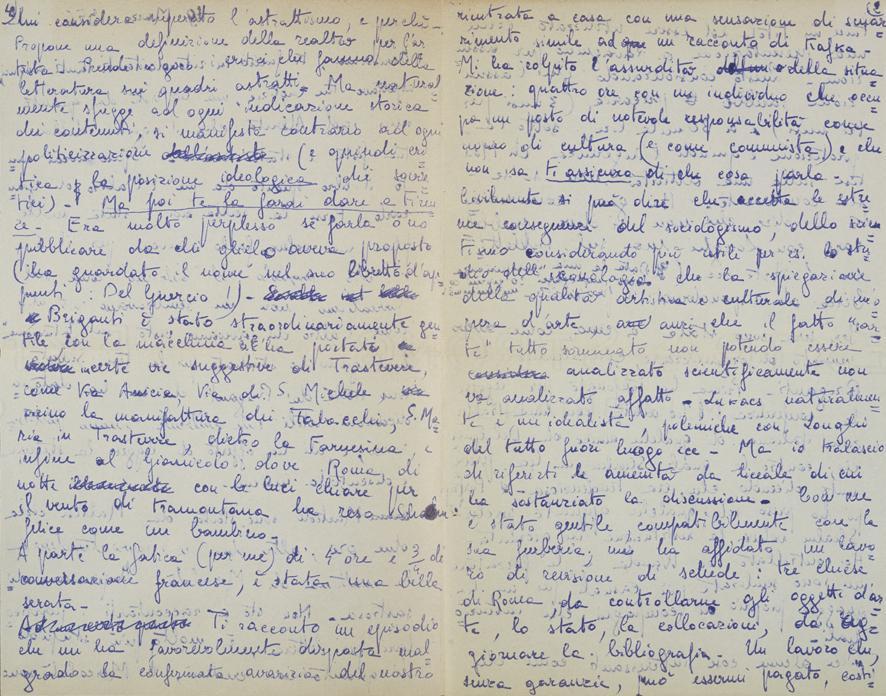 lui considera superato l'astrattismo, e perché-
Propone una definizione della realtà per l'ar
tista. Prende in giro i critici che fanno della
letteratura sui quadri astratti. Ma natural
mente sfugge ad ogni indicazione storica
dei contenuti, si manifesta contrario ad ogni
politicizzazione (e quindi cri
tica la posizione ideologica dei sovie
tici)- Ma poi te la farai dare a Firen
ze- Era molto perplesso se farla o no
pubblicare da chi glielo aveva proposto
(ha guardato il nome sul suo libretto d'ap
punti: Del Guercio!)-
Briganti è stato straordinariamente gen
tile con la macchina ci ha portato
in certe vie suggestive di Trastevere,
come Via Anicia, Via di S. Michele
vicino la manifattura dei Tabacchi, S. Ma
ria in Trastevere, dietro la Farnesina e
infine al Gianicolo dove Roma di
notte con le luci chiare per
il vento di tramontana ha reso
felice come un bambino-
A parte la fatica (per me) di 4 ore e 3/4 di
conversazione francese, è stata una bella
serata-
Ti racconto un episodio
che mi ha favorevolmente disposta mal
grado la confermata avarizia del nostro
2
rientrata a casa con una sensazione di smar
rimento simile ad un racconto di Kafka-
Mi ha colpito l'assurdità della situa
zione: quattro ore con un individuo che occu
pa un posto di notevole responsabilità come
uomo di cultura (e come comunista) e che
non sa ti assicuro di che cosa parla-
si può dire che accetta le estre
me conseguenze del sociologismo, dello scien
tismo considerando più utili per es. lo stu
dio dell' che la spiegazione
della qualità artistica e culturale di un'o
pera d'arte anzi che il fatto "ar
te" tutto sommato non potendo essere
analizzato scientificamente non
va analizzato affatto- Lukacs naturalmen
te è un idealista, polemiche con Longhi
del tutto fuori luogo ecc- Ma io tralascio
di riferirti le amenità da liceale di cui
ha sostanziato la discussione- Con me
è stato gentile compatibilmente con la
sua, mi ha affidato un lavo
ro di revisione di schede: tre chiese
di Roma, da controllarne gli oggetti d'ar
te, lo stato, la collocazione, da ag
giornare la bibliografia- Un lavoro che,
senza garanzie, può essermi pagato, costi